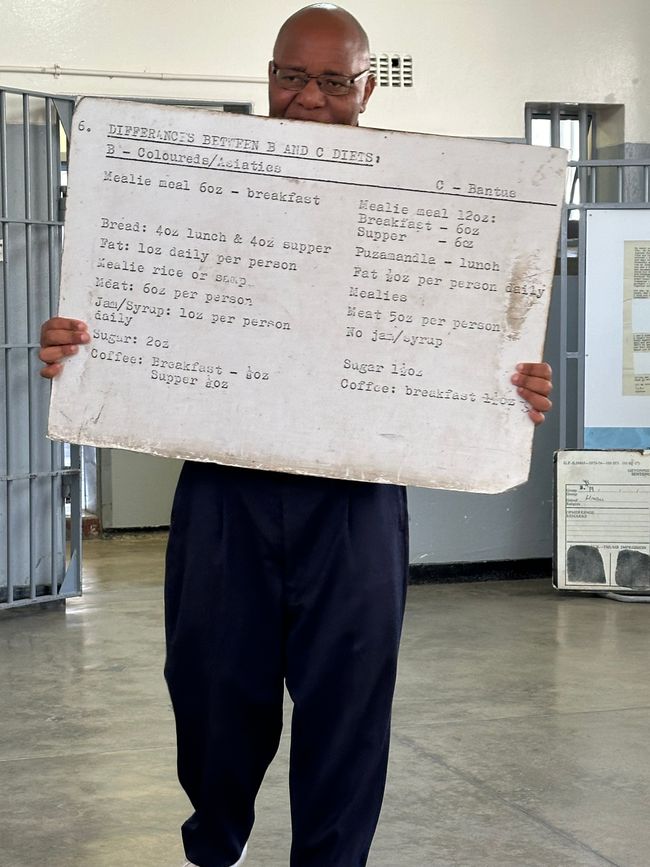 6. DIFFERANCES BETWEEN B AND C DIETS:
B - Coloureds/Asiatics
C - Bantus
Mealie meal 6oz - breakfast
Bread: 4oz lunch & 4oz supper
Fat: 1oz daily per person
Mealie rice or samp
Meat: 6oz per person
Jam/Syrup: 1oz per person
daily
Sugar: 2oz
Coffee: Breakfast - ½oz
Supper ½oz
Mealie meal 12oz:
Breakfast - 6oz
Supper - 6oz
Puzamandla - lunch
Fat ½oz per person daily
Mealies
Meat 5oz per person
No jam/syrup
Sugar 1½oz
Coffee: breakfast